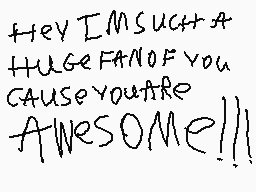 HeY IM SUCH A
HUGe FAN OF YOU
CAUSe YOU ARe
AWeSOMe!!!